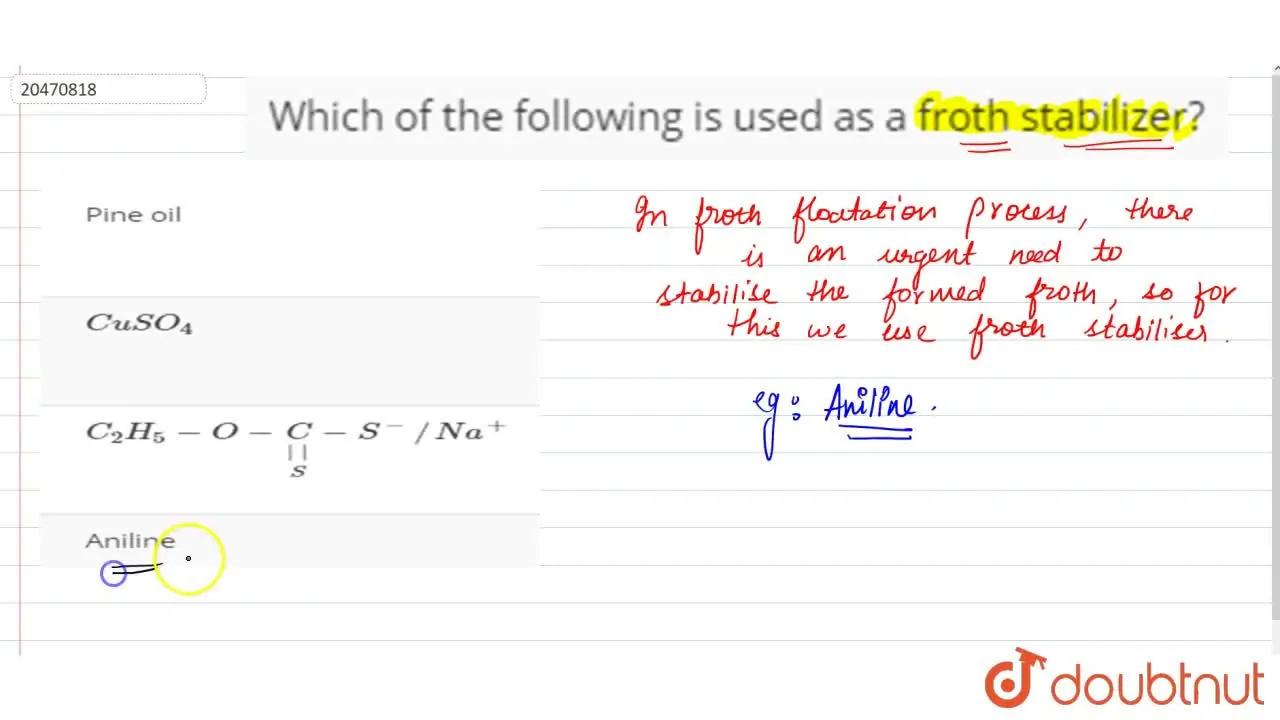 20470818
Which of the following is used as a froth stabilizer?
Pine oil
CuSO₄
C₂H₅ − O − C − S⁻ / Na⁺
||
S
Aniline
In froth floatation process, there
is an urgent need to
stabilise the formed froth, so for
this we use froth stabiliser.
eg: Aniline.
doubtnut